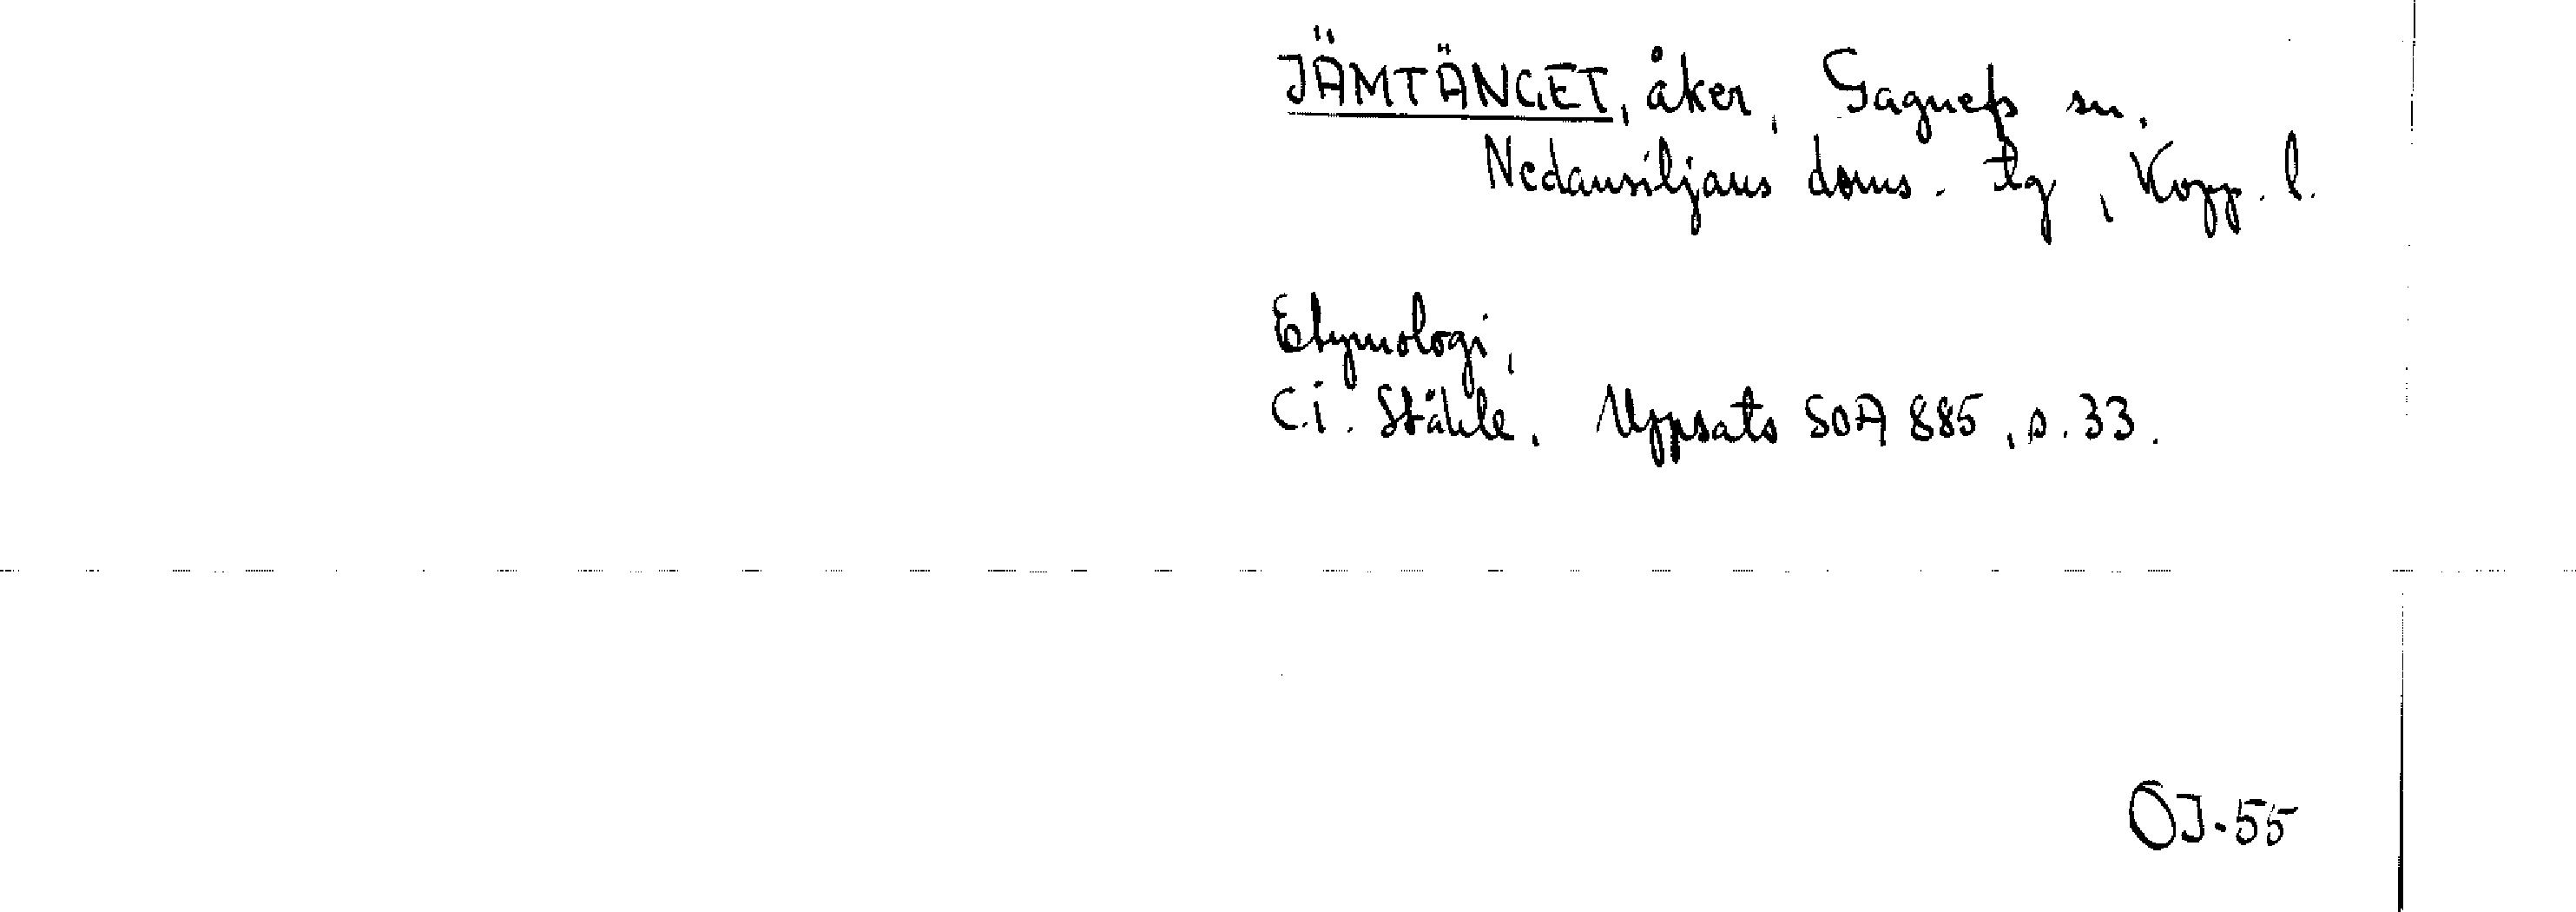 JÄMTÄNGET, åker, Gagnefs sn,
Nedansiljans doms. tg, Kopp. l.
Etymologi,
C.I. Ståhle. Uppsats SOA 885, s. 33.
OJ-55